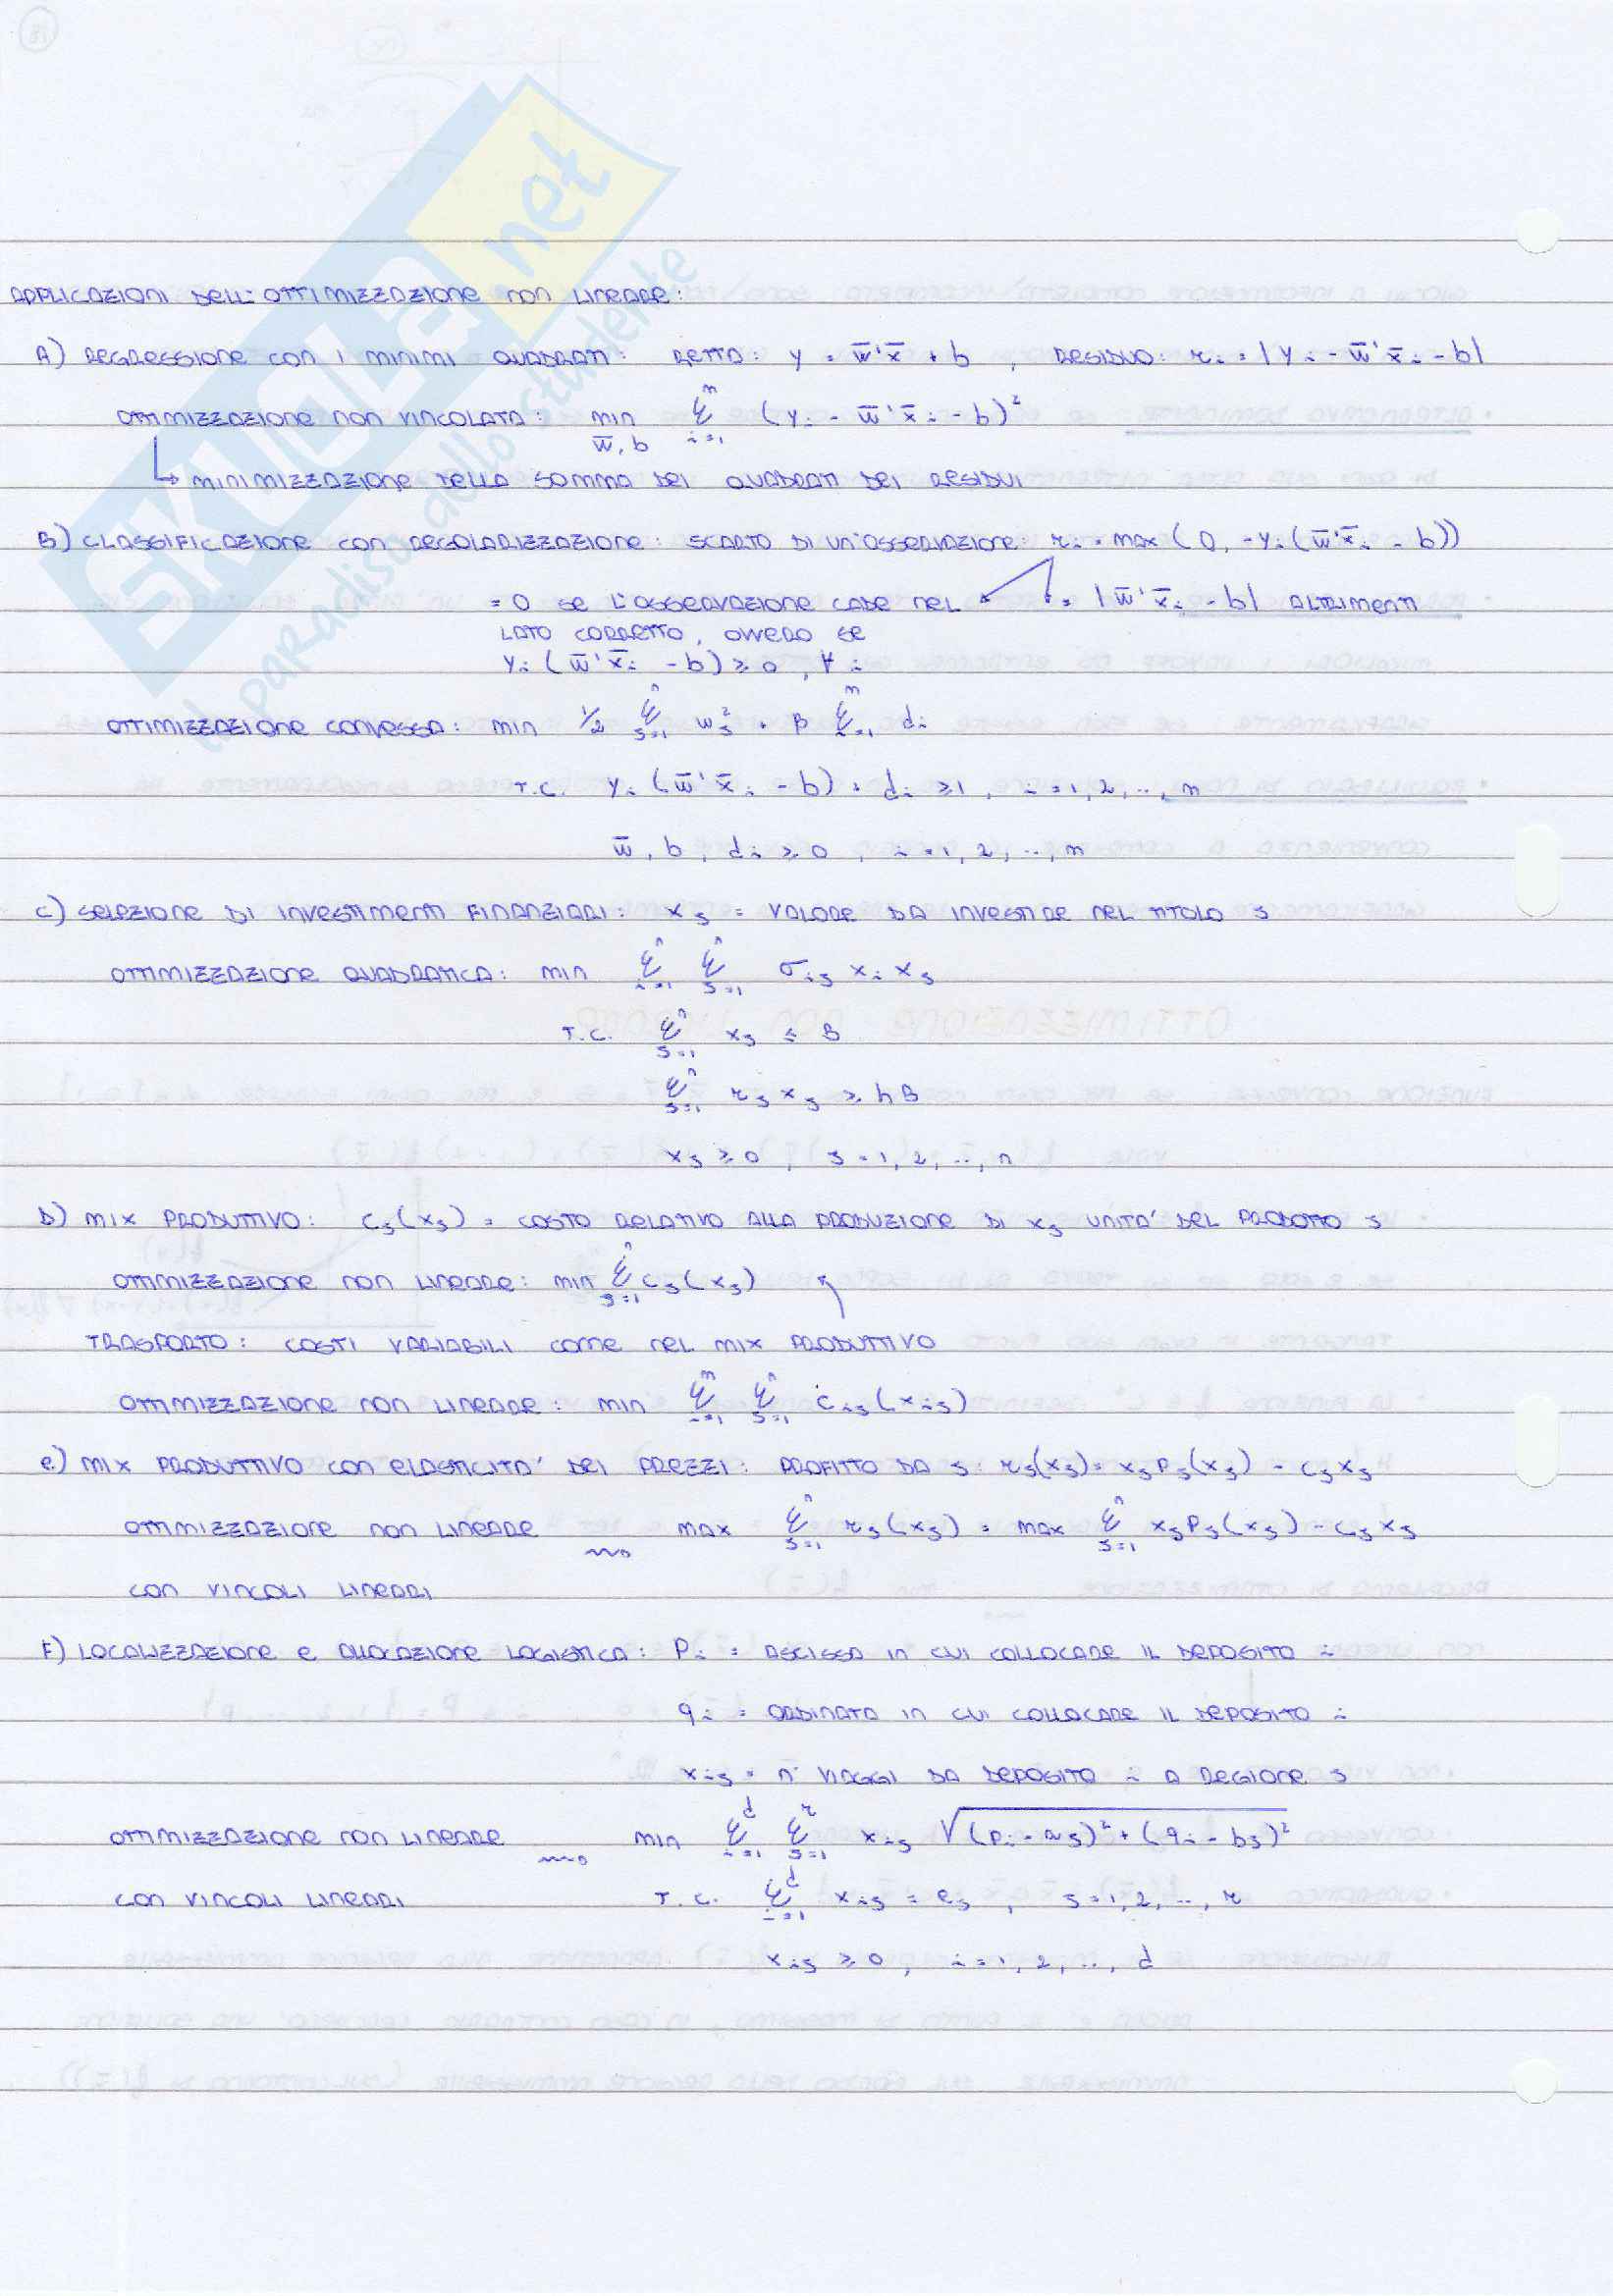 SKUOLA.net
il paradiso dello studente
APPLICAZIONI DELL'OTTIMIZZAZIONE NON LINEARE:
A) REGRESSIONE CON I MINIMI QUADRATI: RETTA: y = w̄'x̄ + b, RESIDUO: r_i = |y_i - w̄'x̄_i - b|
OTTIMIZZAZIONE NON VINCOLATA: min_{w̄,b} Σ_{i=1}^{m} (y_i - w̄'x̄_i - b)²
↳ MINIMIZZAZIONE DELLA SOMMA DEI QUADRATI DEI RESIDUI
B) CLASSIFICAZIONE CON REGOLARIZZAZIONE: SCARTO DI UN'OSSERVAZIONE: r_i = max(0, -y_i(w̄'x̄_i - b))
= 0 SE L'OSSERVAZIONE CADE NEL ↙ ↘ = |w̄'x̄_i - b| ALTRIMENTI
LATO CORRETTO, OVVERO SE
y_i(w̄'x̄_i - b) ≥ 0, ∀ i
OTTIMIZZAZIONE CONVESSA: min 1/2 Σ_{j=1}^{n} w_j² + β Σ_{i=1}^{m} d_i
T.C. y_i(w̄'x̄_i - b) + d_i ≥ 1, i = 1, 2, .., m
w̄, b, d_i ≥ 0, i = 1, 2, .., m
C) SELEZIONE DI INVESTIMENTI FINANZIARI: x_j = VALORE DA INVESTIRE NEL TITOLO j
OTTIMIZZAZIONE QUADRATICA: min Σ_{i=1}^{n} Σ_{j=1}^{n} σ_ij x_i x_j
T.C. Σ_{j=1}^{n} x_j ≤ B
Σ_{j=1}^{n} r_j x_j ≥ hB
x_j ≥ 0, j = 1, 2, .., n
D) MIX PRODUTTIVO: c_j(x_j) = COSTO RELATIVO ALLA PRODUZIONE DI x_j UNITA' DEL PRODOTTO j
OTTIMIZZAZIONE NON LINEARE: min Σ_{j=1}^{n} c_j(x_j)
TRASPORTO: COSTI VARIABILI COME NEL MIX PRODUTTIVO
OTTIMIZZAZIONE NON LINEARE: min Σ_{i=1}^{m} Σ_{j=1}^{n} c_ij(x_ij)
E) MIX PRODUTTIVO CON ELASTICITA' DEI PREZZI: PROFITTO DA j: r_j(x_j) = x_j p_j(x_j) - c_j x_j
OTTIMIZZAZIONE NON LINEARE max Σ_{j=1}^{n} r_j(x_j) = max Σ_{j=1}^{n} x_j p_j(x_j) - c_j x_j
CON VINCOLI LINEARI
F) LOCALIZZAZIONE E ALLOCAZIONE LOGISTICA: p_i = ASCISSA IN CUI COLLOCARE IL DEPOSITO i
q_i = ORDINATA IN CUI COLLOCARE IL DEPOSITO i
x_ij = n° VIAGGI DA DEPOSITO i A REGIONE j
OTTIMIZZAZIONE NON LINEARE min Σ_{i=1}^{d} Σ_{j=1}^{r} x_ij √((p_i - a_j)² + (q_i - b_j)²)
CON VINCOLI LINEARI T.C. Σ_{i=1}^{d} x_ij = e_j, j = 1, 2, .., r
x_ij ≥ 0, i = 1, 2, .., d